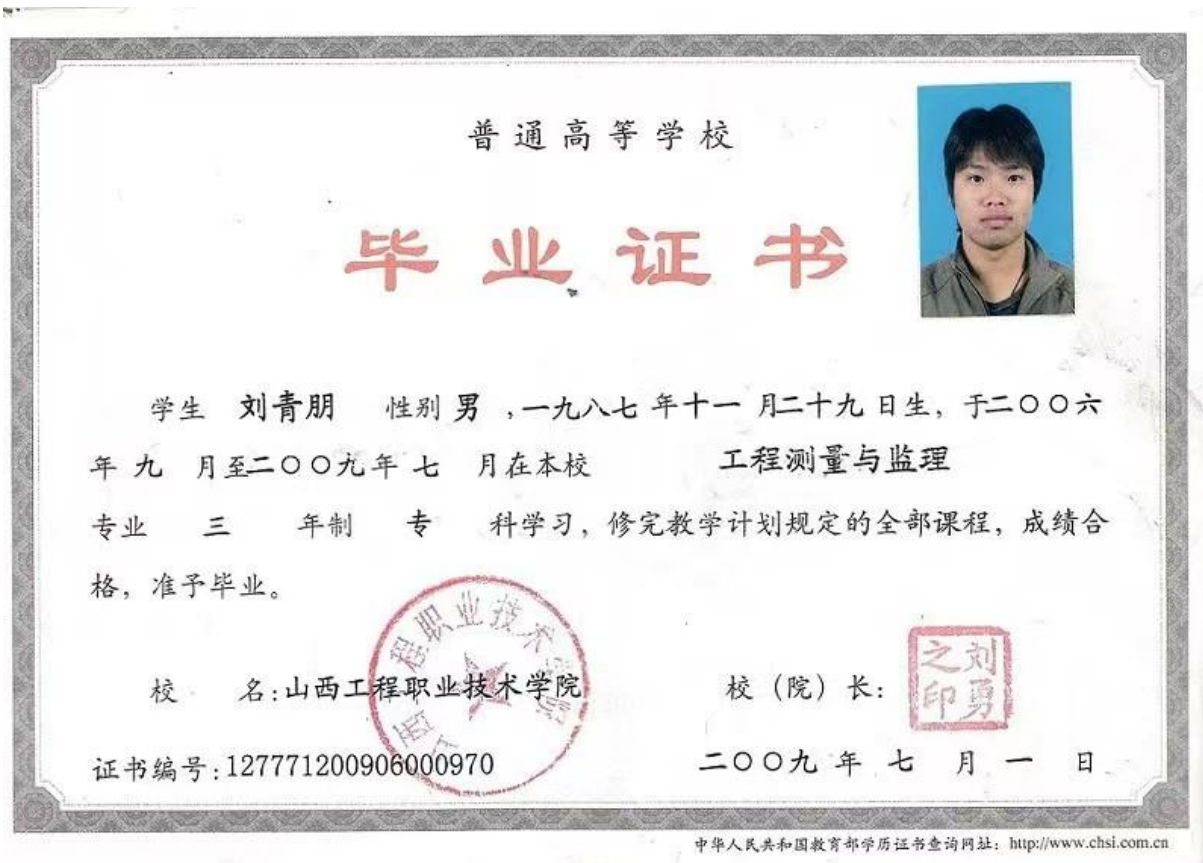 普通高等学校
毕业证书
学生 刘青朋 性别 男 ,一九八七 年十一 月二十九 日生, 于二〇〇六
年 九 月至二〇〇九年 七 月在本校 工程测量与监理
专业 三 年制 专 科学习, 修完教学计划规定的全部课程, 成绩合
格, 准予毕业。
山西工程职业技术学院
校 名:山西工程职业技术学院 校 (院) 长: 刘勇之印
证书编号:127771200906000970 二〇〇九 年 七 月 一 日
中华人民共和国教育部学历证书查询网址: http://www.chsi.com.cn